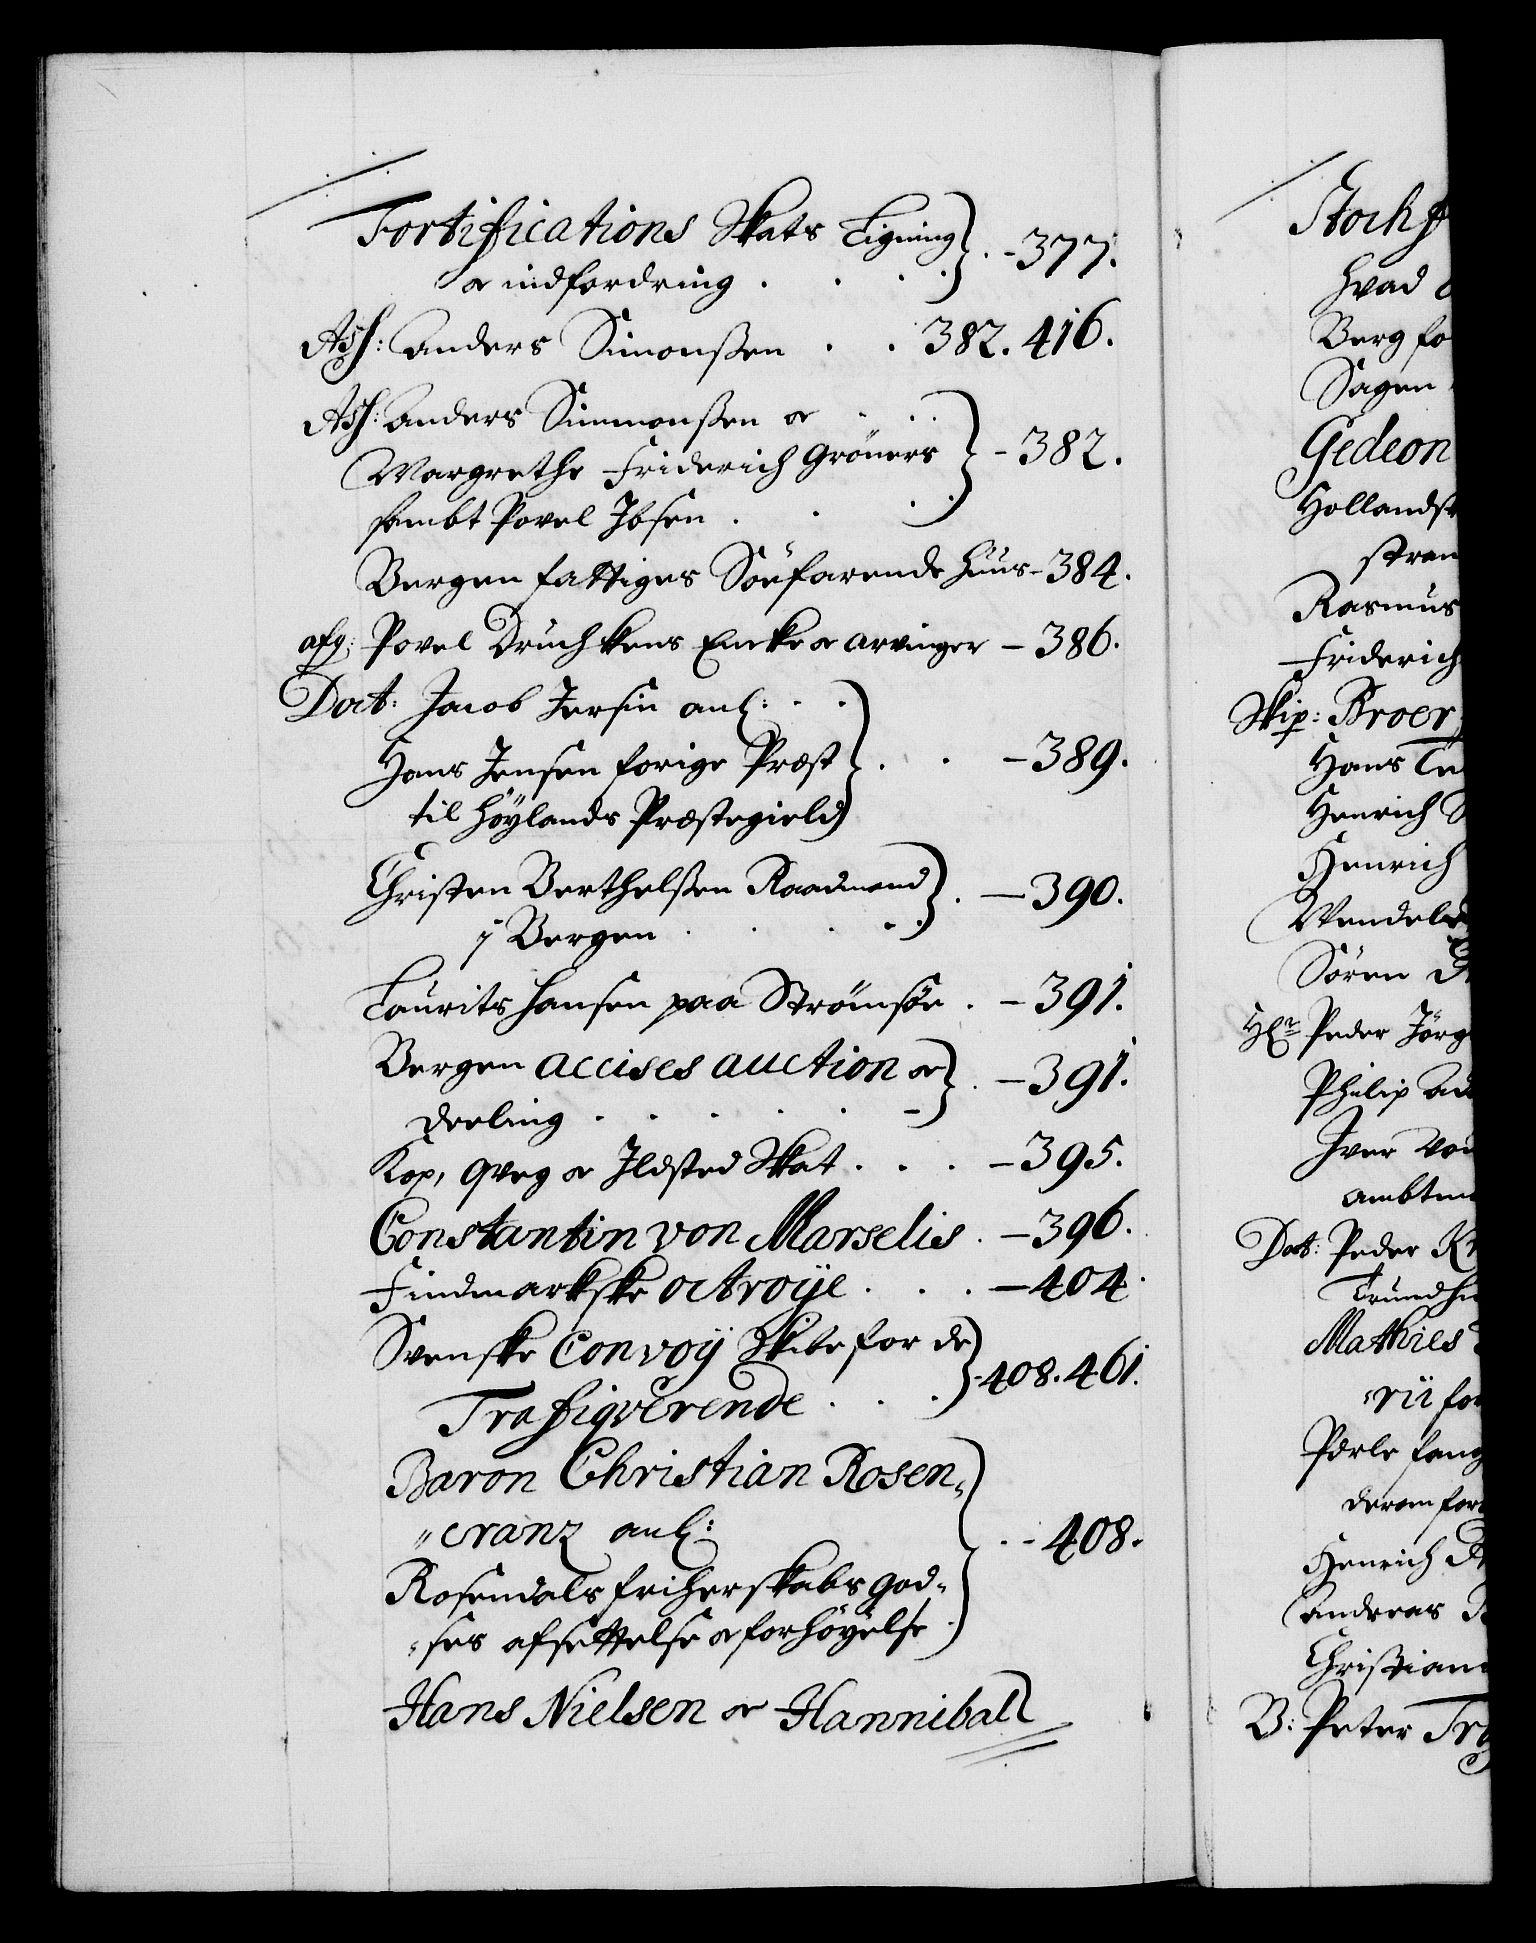 Fortifications Skats Ligning
& indfordring . . . . -377.
Ass: Anders Simonßen . . 382. 416.
Ass: Anders Simmonßen &
Margrethe Friderich Gröners -382.
sambt Povel Ibsen . . .
Bergen fattiges Söefarende Huus -384.
afg: Povel Druchkens Encke & arvinger -386.
Doct: Jacob Jersin anl: . .
Hans Jensen forige Præst . . -389.
til Höylands Præstegield
Christen Berthelßen Raadmand . -390.
i Bergen . . . .
Laurits Hansen paa Strömsöe . -391.
Bergen accises auction & . -391.
deeling . . . . .
Kop, Qveg & Ildsted Skat . . . -395.
Constantin von Marselis . -396.
Findmarkske octroÿe . . . -404.
Svenske Convoÿ Skibe for de
Trafiqverende . . . -408. 461.
Baron Christian Rosen„
„cranz anl: . -408.
Rosendals friherskabs God„
„ses afsettelse & forhöyelse .
Hans Nielsen & Hannibal
Stoch
hvad
Berg
Sagen
Gedeon
Hollandst
stran
Rasmus
Friderich
Skip: Broer
Hans
Henrich
Henrich
Wendel
Sören
Hr Peder Jörg
Philip
Iver
ambtm
Doct: Peder
Trundh
Mathies
„rii for
Perle fang
derom for
Henrich
Andreas
Christian
B: Peter